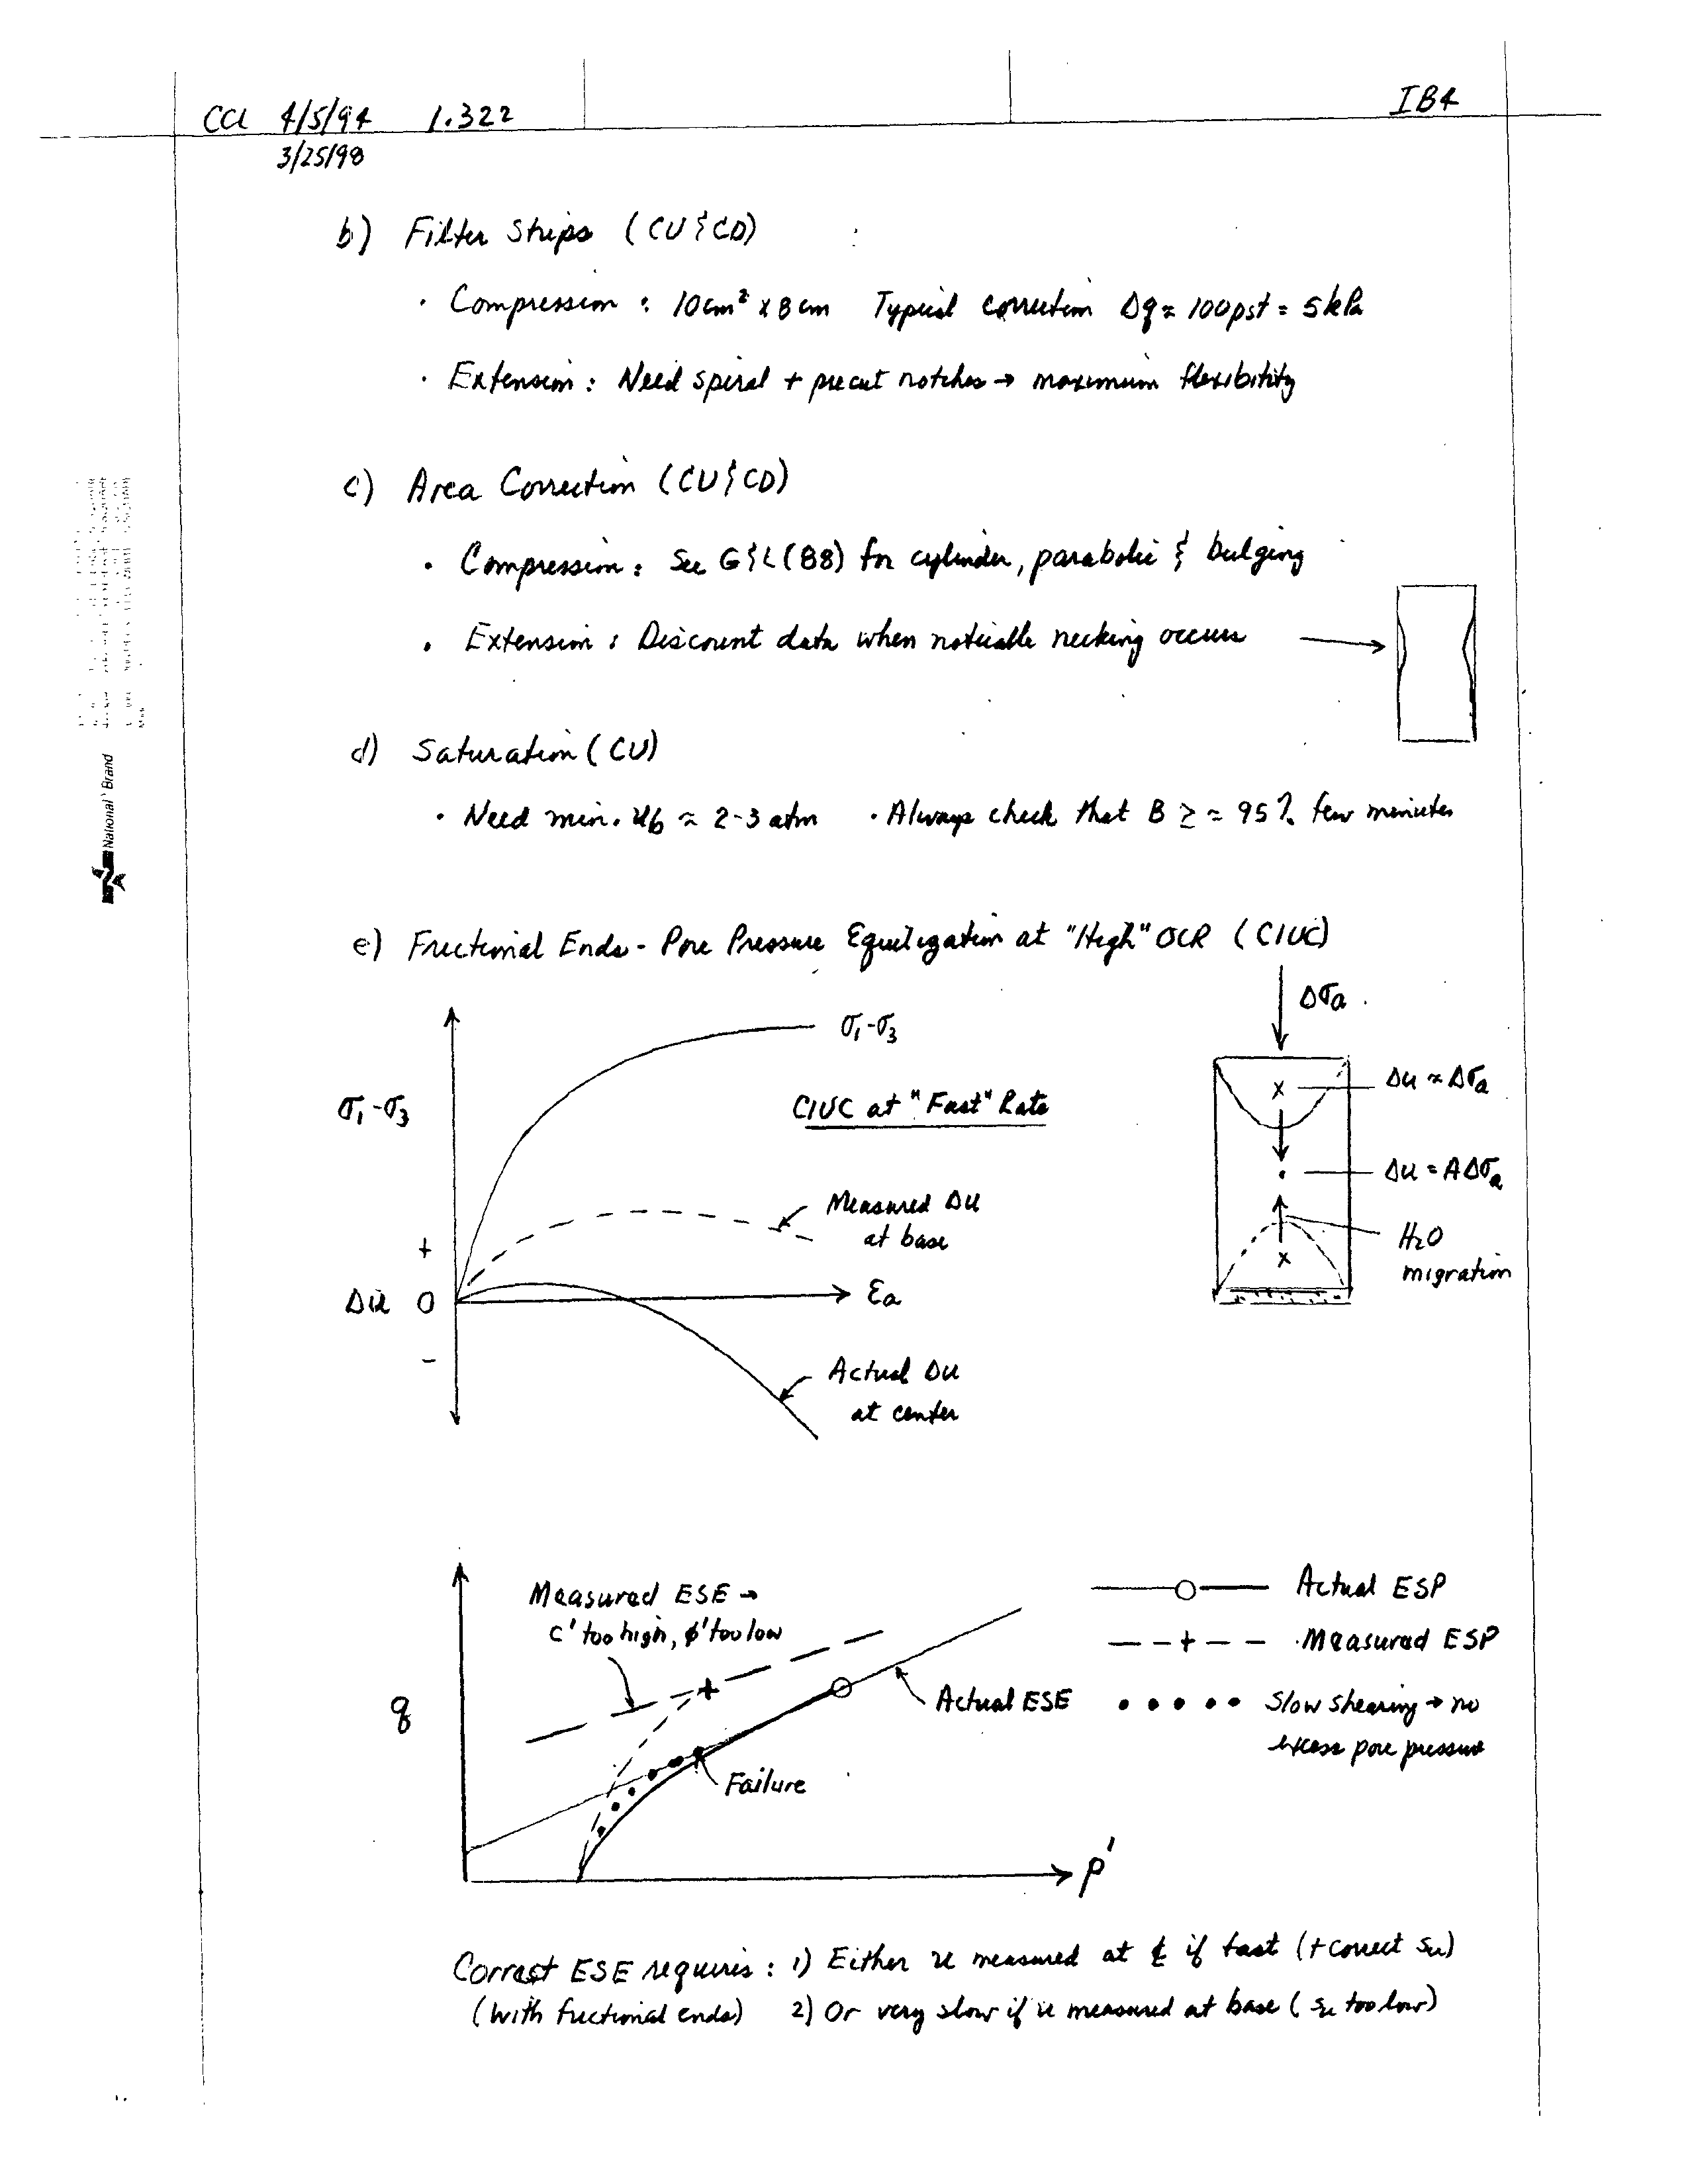 CCL 4/5/94 1.322 IB4
3/25/98
b) Filter Strips (CU & CD)
· Compression : 10cm² x 8cm Typical correction Δq ≈ 100psf = 5kPa
· Extension : Need spiral + precut notches → maximum flexibility
c) Area Correction (CU & CD)
· Compression : See G&L(88) for cylinder, parabolic & bulging
· Extension : Discount data when noticable necking occurs
d) Saturation (CU)
· Need min. u_b ≈ 2-3 atm · Always check that B ≥ ≈ 95% few minutes
National Brand
e) Frictional Ends - Pore Pressure Equilization at "High" OCR (CIUC)
Δσa
σ₁-σ₃
Δu ≈ Δσa
σ₁-σ₃
CIUC at "Fast" Rate
Δu = AΔσa
Measured Δu
at base
H₂O
migration
+
Δu 0
εa
-
Actual Δu
at center
Measured ESE →
c' too high, φ' too low
Actual ESP
Measured ESP
q
Actual ESE
Slow shearing → no
excess pore pressure
Failure
p'
Correct ESE requires : 1) Either u measured at ℄ if fast (+ correct su)
(with frictional ends) 2) Or very slow if u measured at base ( su too low)